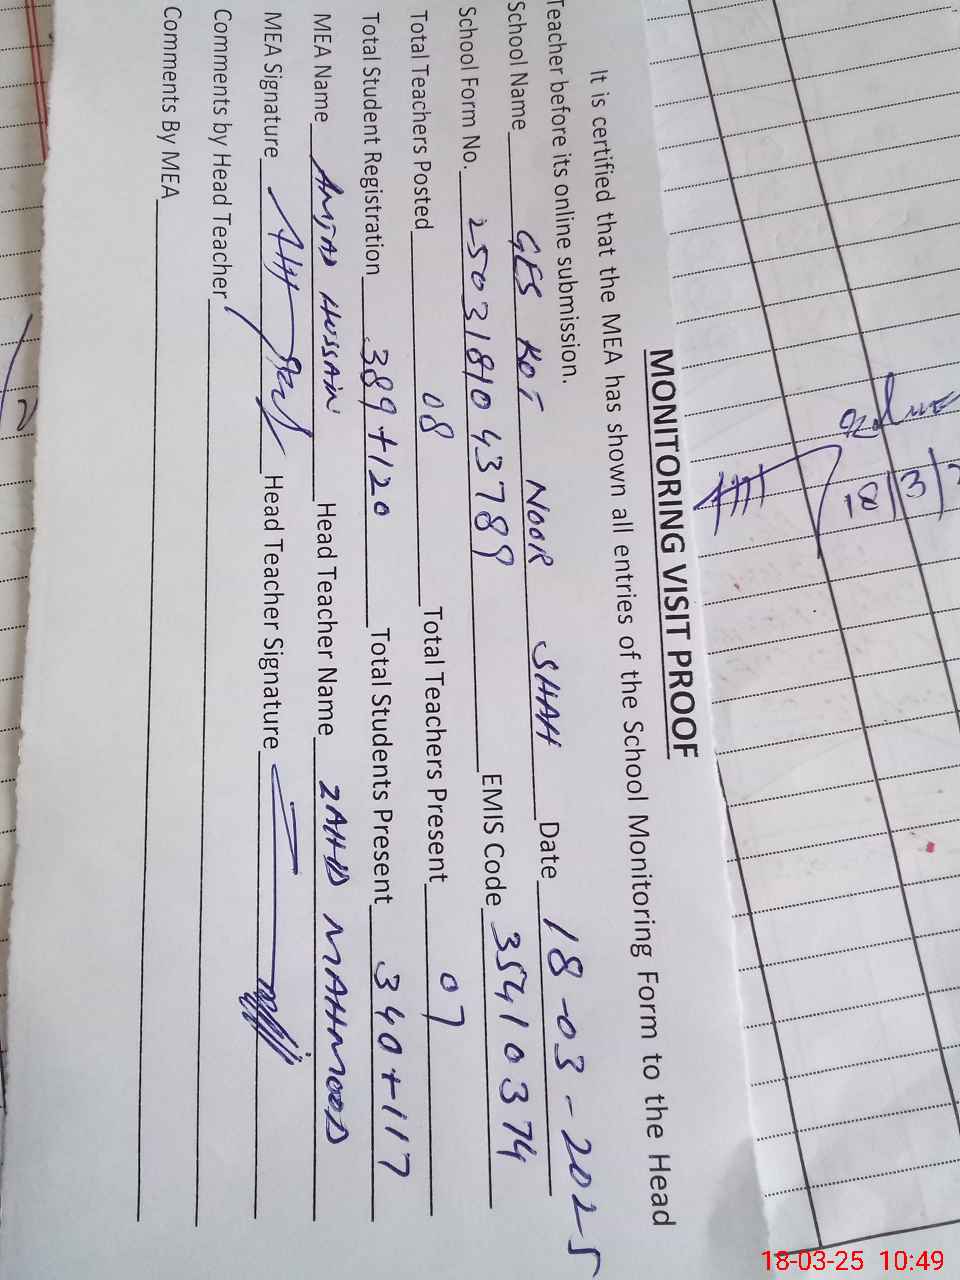 MONITORING VISIT PROOF
It is certified that the MEA has shown all entries of the School Monitoring Form to the Head
Teacher before its online submission.
School Name GES KOT NOOR SHAH Date 18-03-2025
School Form No. 25031810 43789 EMIS Code 35410374
Total Teachers Posted 08 Total Teachers Present 07
Total Student Registration 389+120 Total Students Present 340+117
MEA Name AMJAD HUSSAIN Head Teacher Name ZAHID MAHMOOD
MEA Signature Head Teacher Signature
Comments by Head Teacher
Comments By MEA
18/3/
18-03-25 10:49